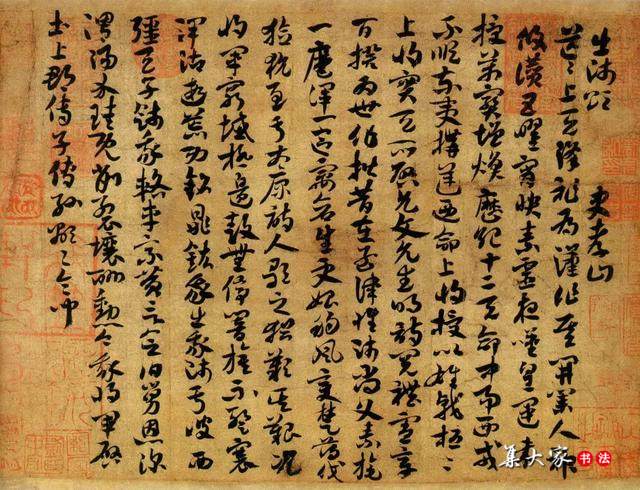 出師頌 史孝山
茫茫上天降祚為漢作基開業人神
攸讚五曜霄映素靈夜歎皇運未
授萬寶增煥歷紀十二天命中易西戎
不順東夷構逆乃命上將授以雄戟桓々
上將寔天所啟允文允武明詩閱禮憲章
百揆為世作楷昔在孟津惟師尚父素旄
一麾渾一區宇蒼生更始朔風變楚薄伐
獫狁至于太原詩人歌之猶歎其艱況
我將軍窮城極邊鼓無停響旗不蹔褰
渾沾遐荒功銘鼎鉉我出我師于彼西
疆天子餞我輅車乘黃言念舊舅恩深
渭陽介珪既削裂壤酬勳今我將軍啟
土上郡傳子傳孫顯々令問
集大家書法